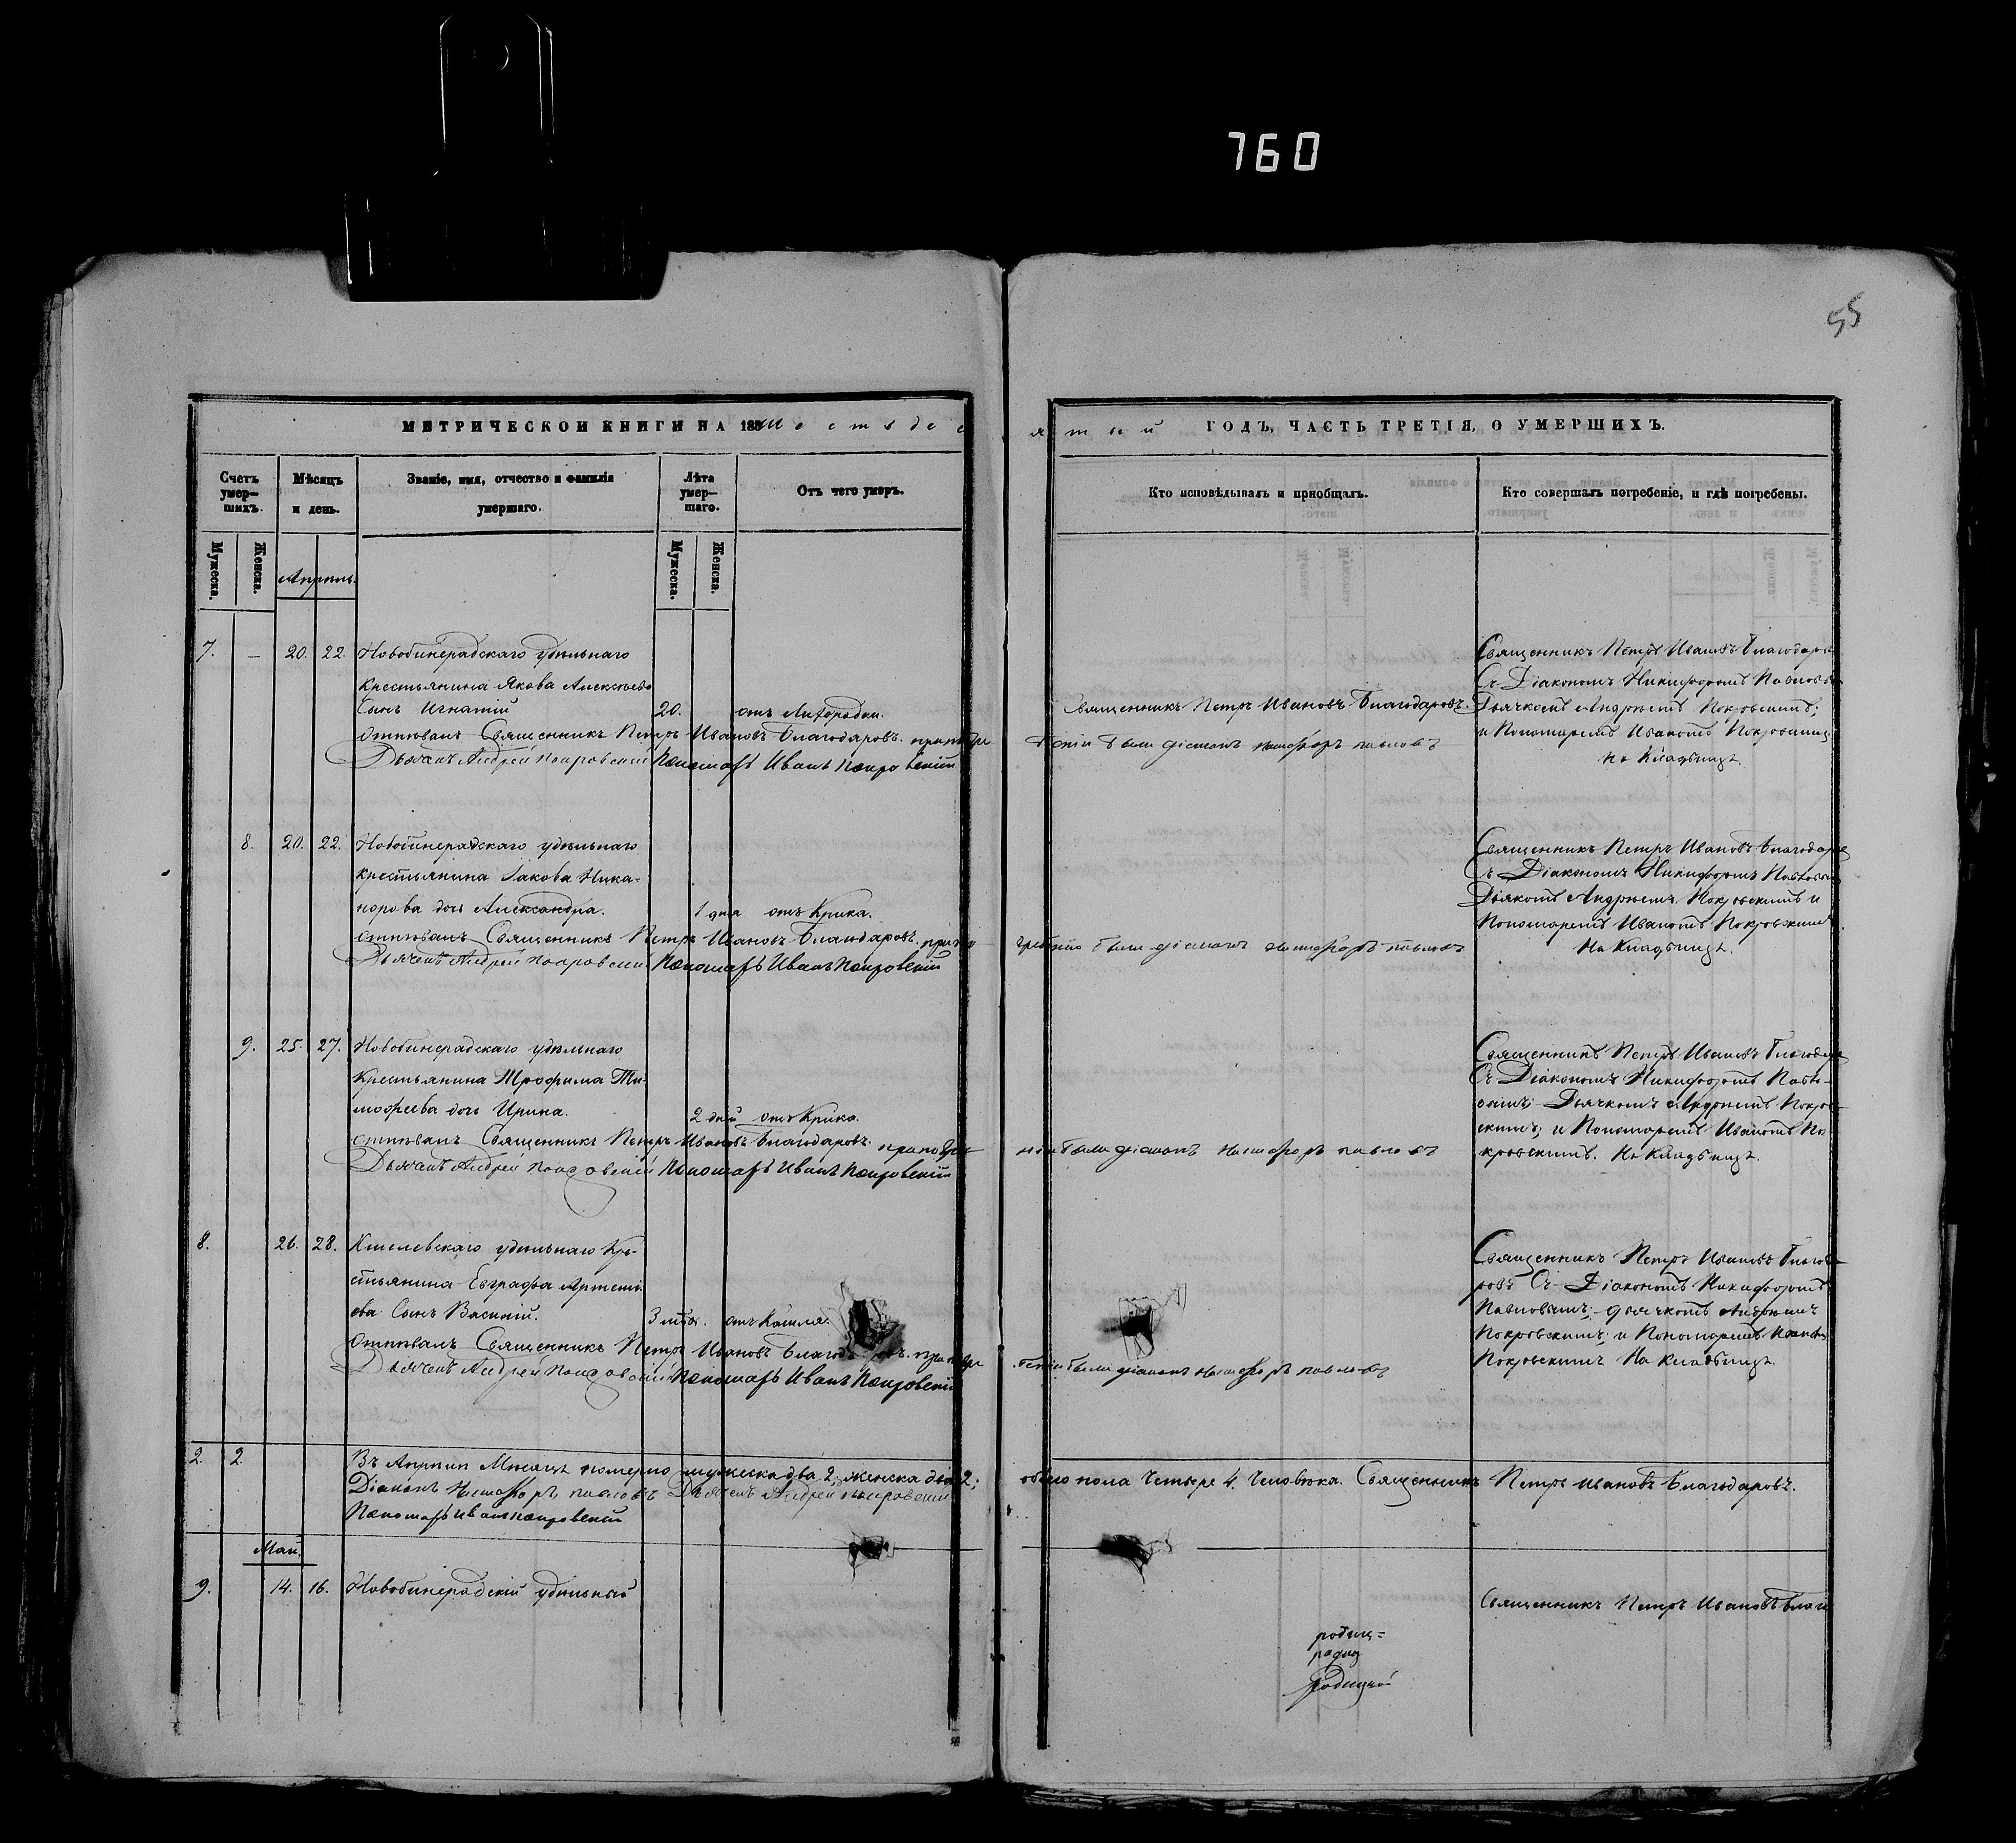 760
55
МЕТРИЧЕСКОЙ КНИГИ НА 185 шестьдес
ятый ГОДЪ, ЧАСТЬ ТРЕТІЯ, О УМЕРШИХЪ.
Счетъ умер-шихъ.
Мѣсяцъ и день.
Званіе, имя, отчество и фамилія умершаго.
Лѣта умер-шаго.
Отъ чего умеръ.
Кто исповѣдывалъ и приобщалъ.
Кто совершалъ погребеніе, и гдѣ погребены.
Мужеска.
Женска.
Мужеска.
Женска.
Апрель.
7. — 20. 22. Новобинерадскаго удѣльнаго
крестьянина Якова Алексѣева
Сынъ Игнатій 20. отъ Лихорадки.
Отпѣвалъ Священникъ Петръ Ивановъ Благодаровъ. при погре
Дьячекъ Андрей Покровскій Пономарь Иванъ Покровскій
Священникъ Петръ Ивановъ Благодаровъ.
беніи были діаконъ Никифоръ Павловъ
Священникъ Петръ Ивановъ Благодаров
Съ Діакономъ Никифоромъ Павловы
Дьячкомъ Андреемъ Покровскимъ;
и Пономаремъ Иваномъ Покровским
на Кладбищѣ.
8. 20. 22. Новобинерадскаго удѣльнаго
крестьянина Іакова Ника-
норова дочь Александра. 1 дня отъ Крика.
отпѣвалъ Священникъ Петръ Ивановъ Благодаровъ. при по
Дьячекъ Андрей Покровскій Пономарь Иванъ Покровскій
гребеніи были діаконъ Никифоръ Павловъ
Священникъ Петръ Ивановъ Благодаров
съ Діакономъ Никифоромъ Павловы
Дьякомъ Андреемъ Покровскимъ и
Пономаремъ Иваномъ Покровским
На Кладбищѣ.
9. 25. 27. Новобинерадскаго удѣльнаго
Крестьянина Трофима Ти-
мофеева дочь Ирина. 2 дній отъ Крика.
отпѣвалъ Священникъ Петръ Ивановъ Благодаровъ. при погребе
Дьячекъ Андрей Покровскій Пономарь Иванъ Покровскій
ніи были діаконъ Никифоръ Павловъ
Священникъ Петръ Ивановъ Благодаро
Съ Діакономъ Никифоромъ Павло-
вымъ; Дьячкомъ Андреемъ Покров-
скимъ; и Пономаремъ Иваномъ По
кровскимъ. На Кладбищѣ.
8. 26. 28. удѣльнаго Кре-
стьянина Евграфа Артемі
ева Сынъ Василій. 3 лѣтъ. отъ Кашля.
Отпѣвалъ Священникъ Петръ Ивановъ при погре
Дьячекъ Андрей Покровскій Пономарь Иванъ Покровскій
беніи были діаконъ Никифоръ Павловъ
Священникъ Петръ Ивановъ Благода
ровъ Съ Діакономъ Никифоромъ
Павловымъ; дьячкомъ Андреемъ
Покровскимъ; и Пономаремъ
Покровскимъ На кладбищѣ.
2 2 Въ Апрели Мѣсяцѣ померло мужеска два 2; женска двѣ 2;
обоего пола Четыре 4. Человѣка. Священникъ Петръ Ивановъ Благодаровъ.
Діаконъ Никифоръ Павловъ Дьячекъ Андрей Покровскій
Пономарь Иванъ Покровскій
Май.
9. 14. 16. Новобинерадскій удѣльный
Священникъ Петръ Ивановъ Благо